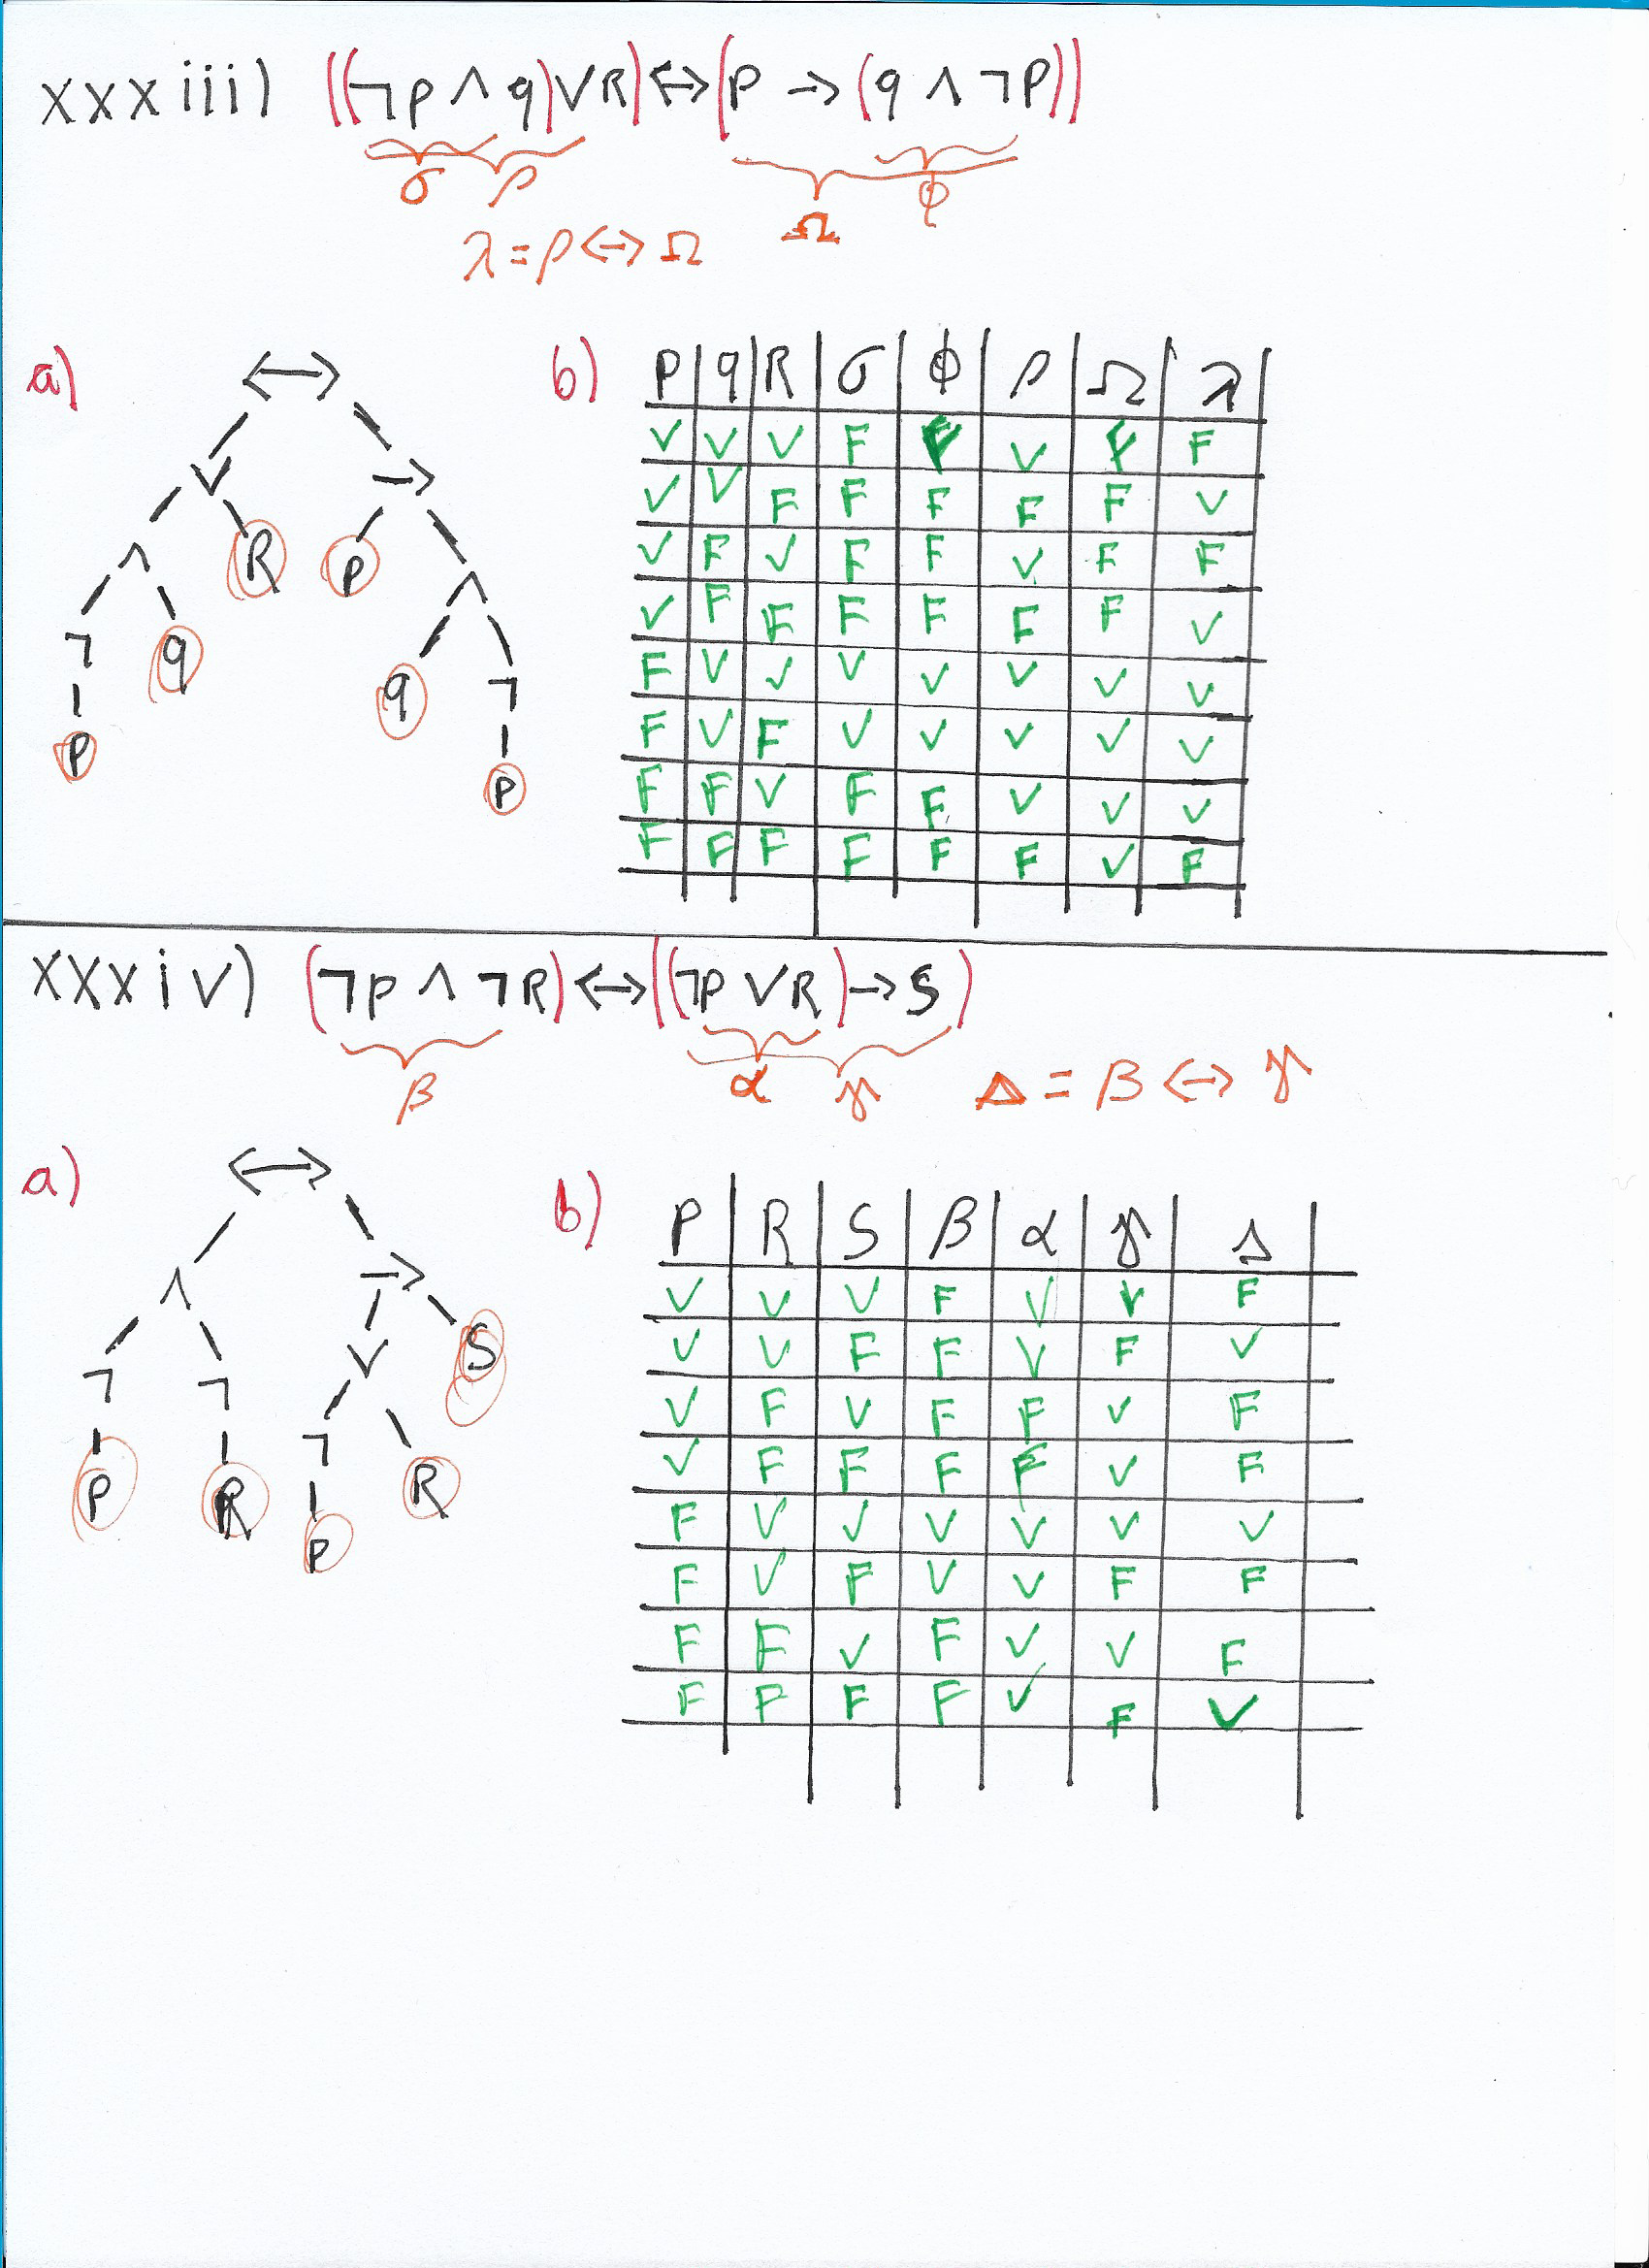 xxxiii) ((¬p ∧ q) ∨ R) ↔ (p → (q ∧ ¬p))
σ ρ Ω ϕ
λ = ρ ↔ Ω
a) ↔
∨ →
∧ R p ∧
¬ q q ¬
p p
b) p q R σ ϕ ρ Ω λ
V V V F F V F F
V V F F F F F V
V F V F F V F F
V F F F F F F V
F V V V V V V V
F V F V V V V V
F F V F F V V V
F F F F F F V F
xxxiv) (¬p ∧ ¬R) ↔ ((¬p ∨ R) → S)
β α γ Δ = β ↔ γ
a) ↔
∧ →
¬ ¬ ∨ S
p R ¬ R
p
b) P R S β α γ Δ
V V V F V V F
V V F F V F V
V F V F F V F
V F F F F V F
F V V V V V V
F V F V V F F
F F V F V V F
F F F F V F V